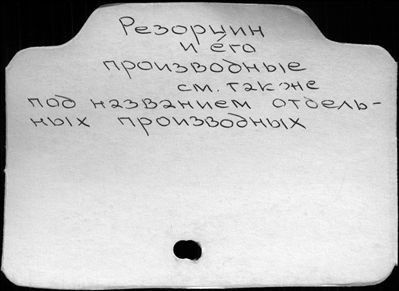 Резорцин
и его
производные
см. также
под названием отдель-
ных производных